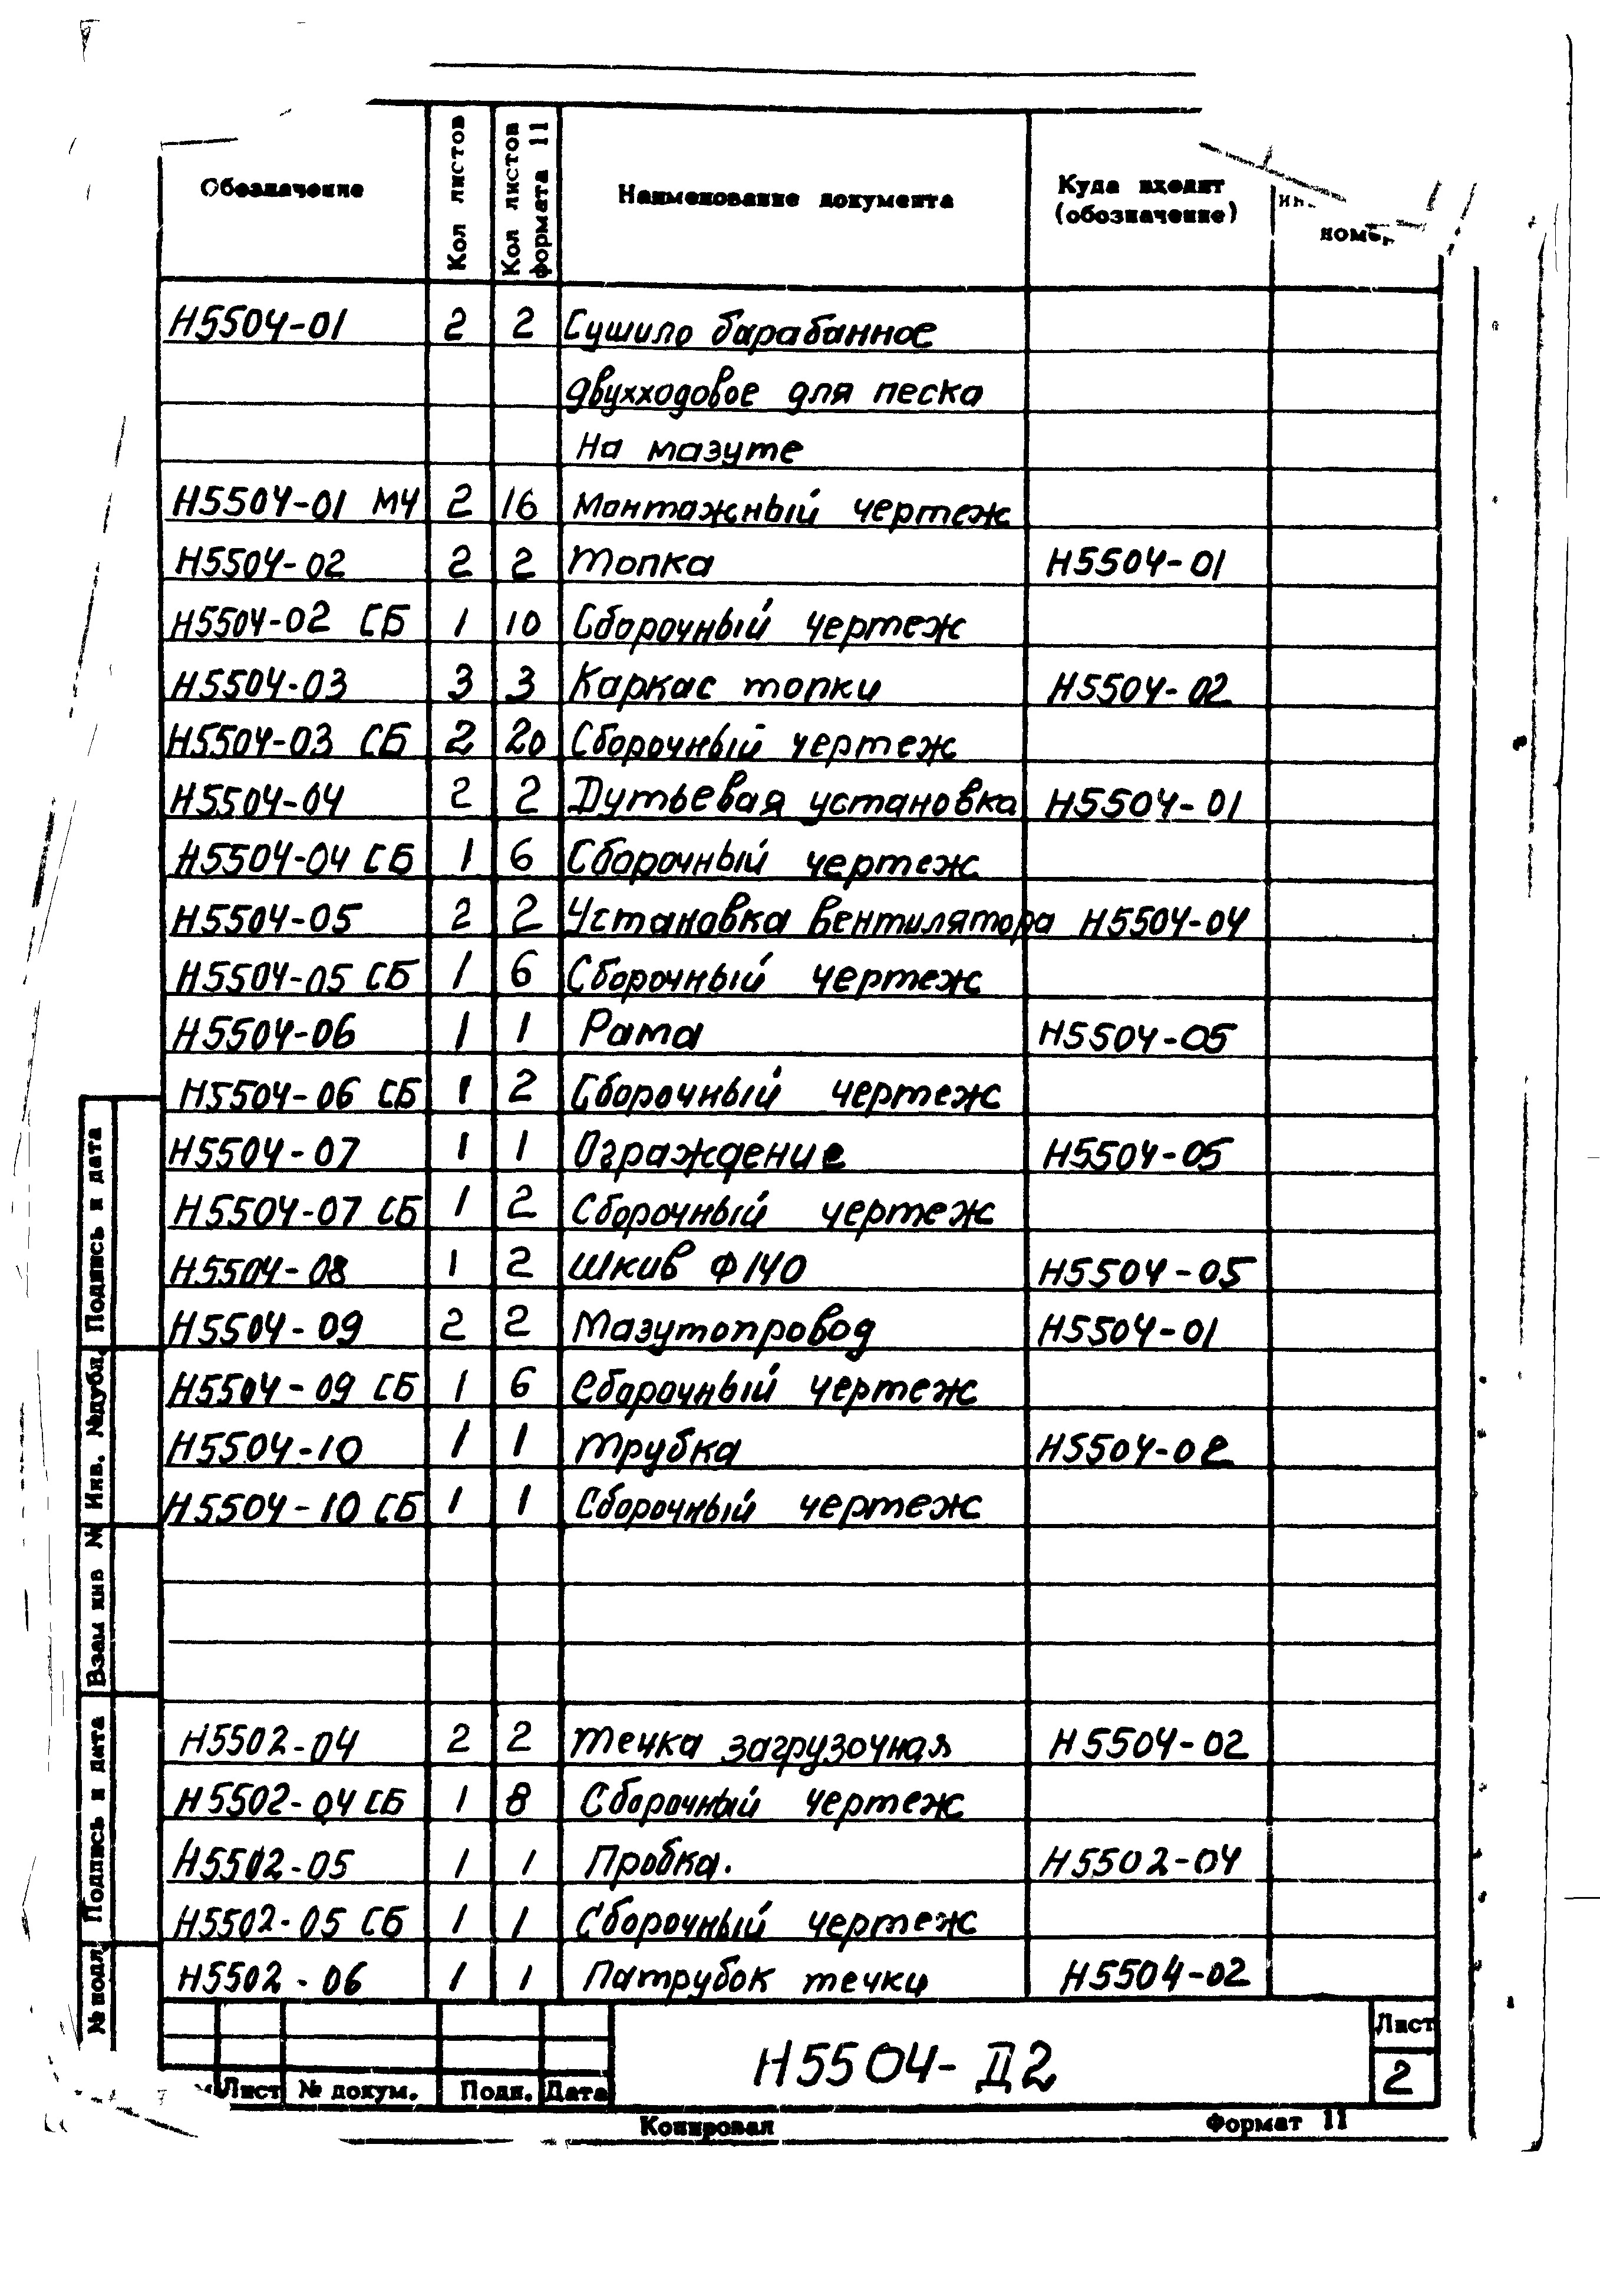 Обозначение Кол листов Кол листов формата 11 Наименование документа Куда входит (обозначение) номер
Н5504-01 2 2 Сушило барабанное
двухходовое для песка
На мазуте
Н5504-01 МЧ 2 16 Монтажный чертеж
Н5504-02 2 2 Топка Н5504-01
Н5504-02 СБ 1 10 Сборочный чертеж
Н5504-03 3 3 Каркас топки Н5504-02
Н5504-03 СБ 2 20 Сборочный чертеж
Н5504-04 2 2 Дутьевая установка Н5504-01
Н5504-04 СБ 1 6 Сборочный чертеж
Н5504-05 2 2 Установка вентилятора Н5504-04
Н5504-05 СБ 1 6 Сборочный чертеж
Н5504-06 1 1 Рама Н5504-05
Н5504-06 СБ 1 2 Сборочный чертеж
Н5504-07 1 1 Ограждение Н5504-05
Н5504-07 СБ 1 2 Сборочный чертеж
Н5504-08 1 2 Шкив Ф140 Н5504-05
Н5504-09 2 2 Мазутопровод Н5504-01
Н5504-09 СБ 1 6 Сборочный чертеж
Н5504-10 1 1 Трубка Н5504-02
Н5504-10 СБ 1 1 Сборочный чертеж
Н5502-04 2 2 Течка загрузочная Н5504-02
Н5502-04 СБ 1 8 Сборочный чертеж
Н5502-05 1 1 Пробка. Н5502-04
Н5502-05 СБ 1 1 Сборочный чертеж
Н5502-06 1 1 Патрубок течки Н5504-02
Подпись и дата
Инв. №дубл.
Взам инв №
Подпись и дата
№ подл.
Лист № докум. Подп. Дата
Н5504-Д2
Лист
2
Копировал Формат 11